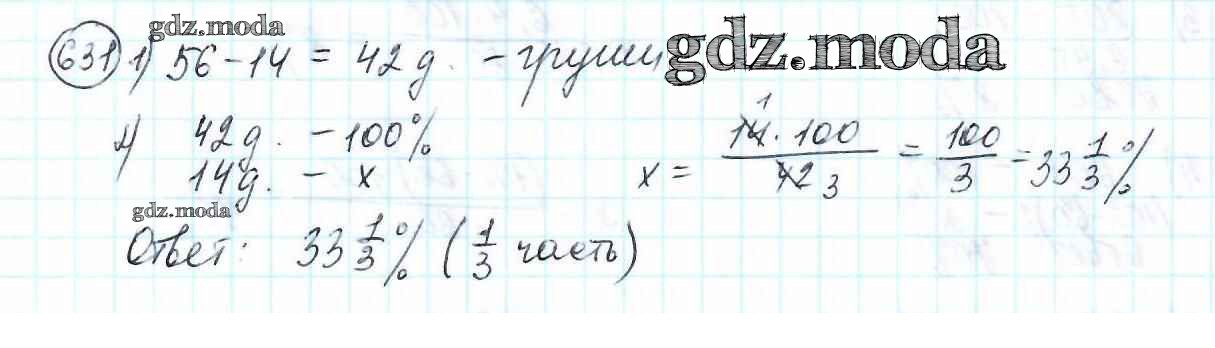 gdz.moda
631 1) 56 - 14 = 42 д. - груши gdz.moda
2) 42 д. - 100%
14 д. - x
x = 14 · 100 / 42 = 100/3 = 33 1/3 %
1
3
gdz.moda
Ответ: 33 1/3 % (1/3 часть)